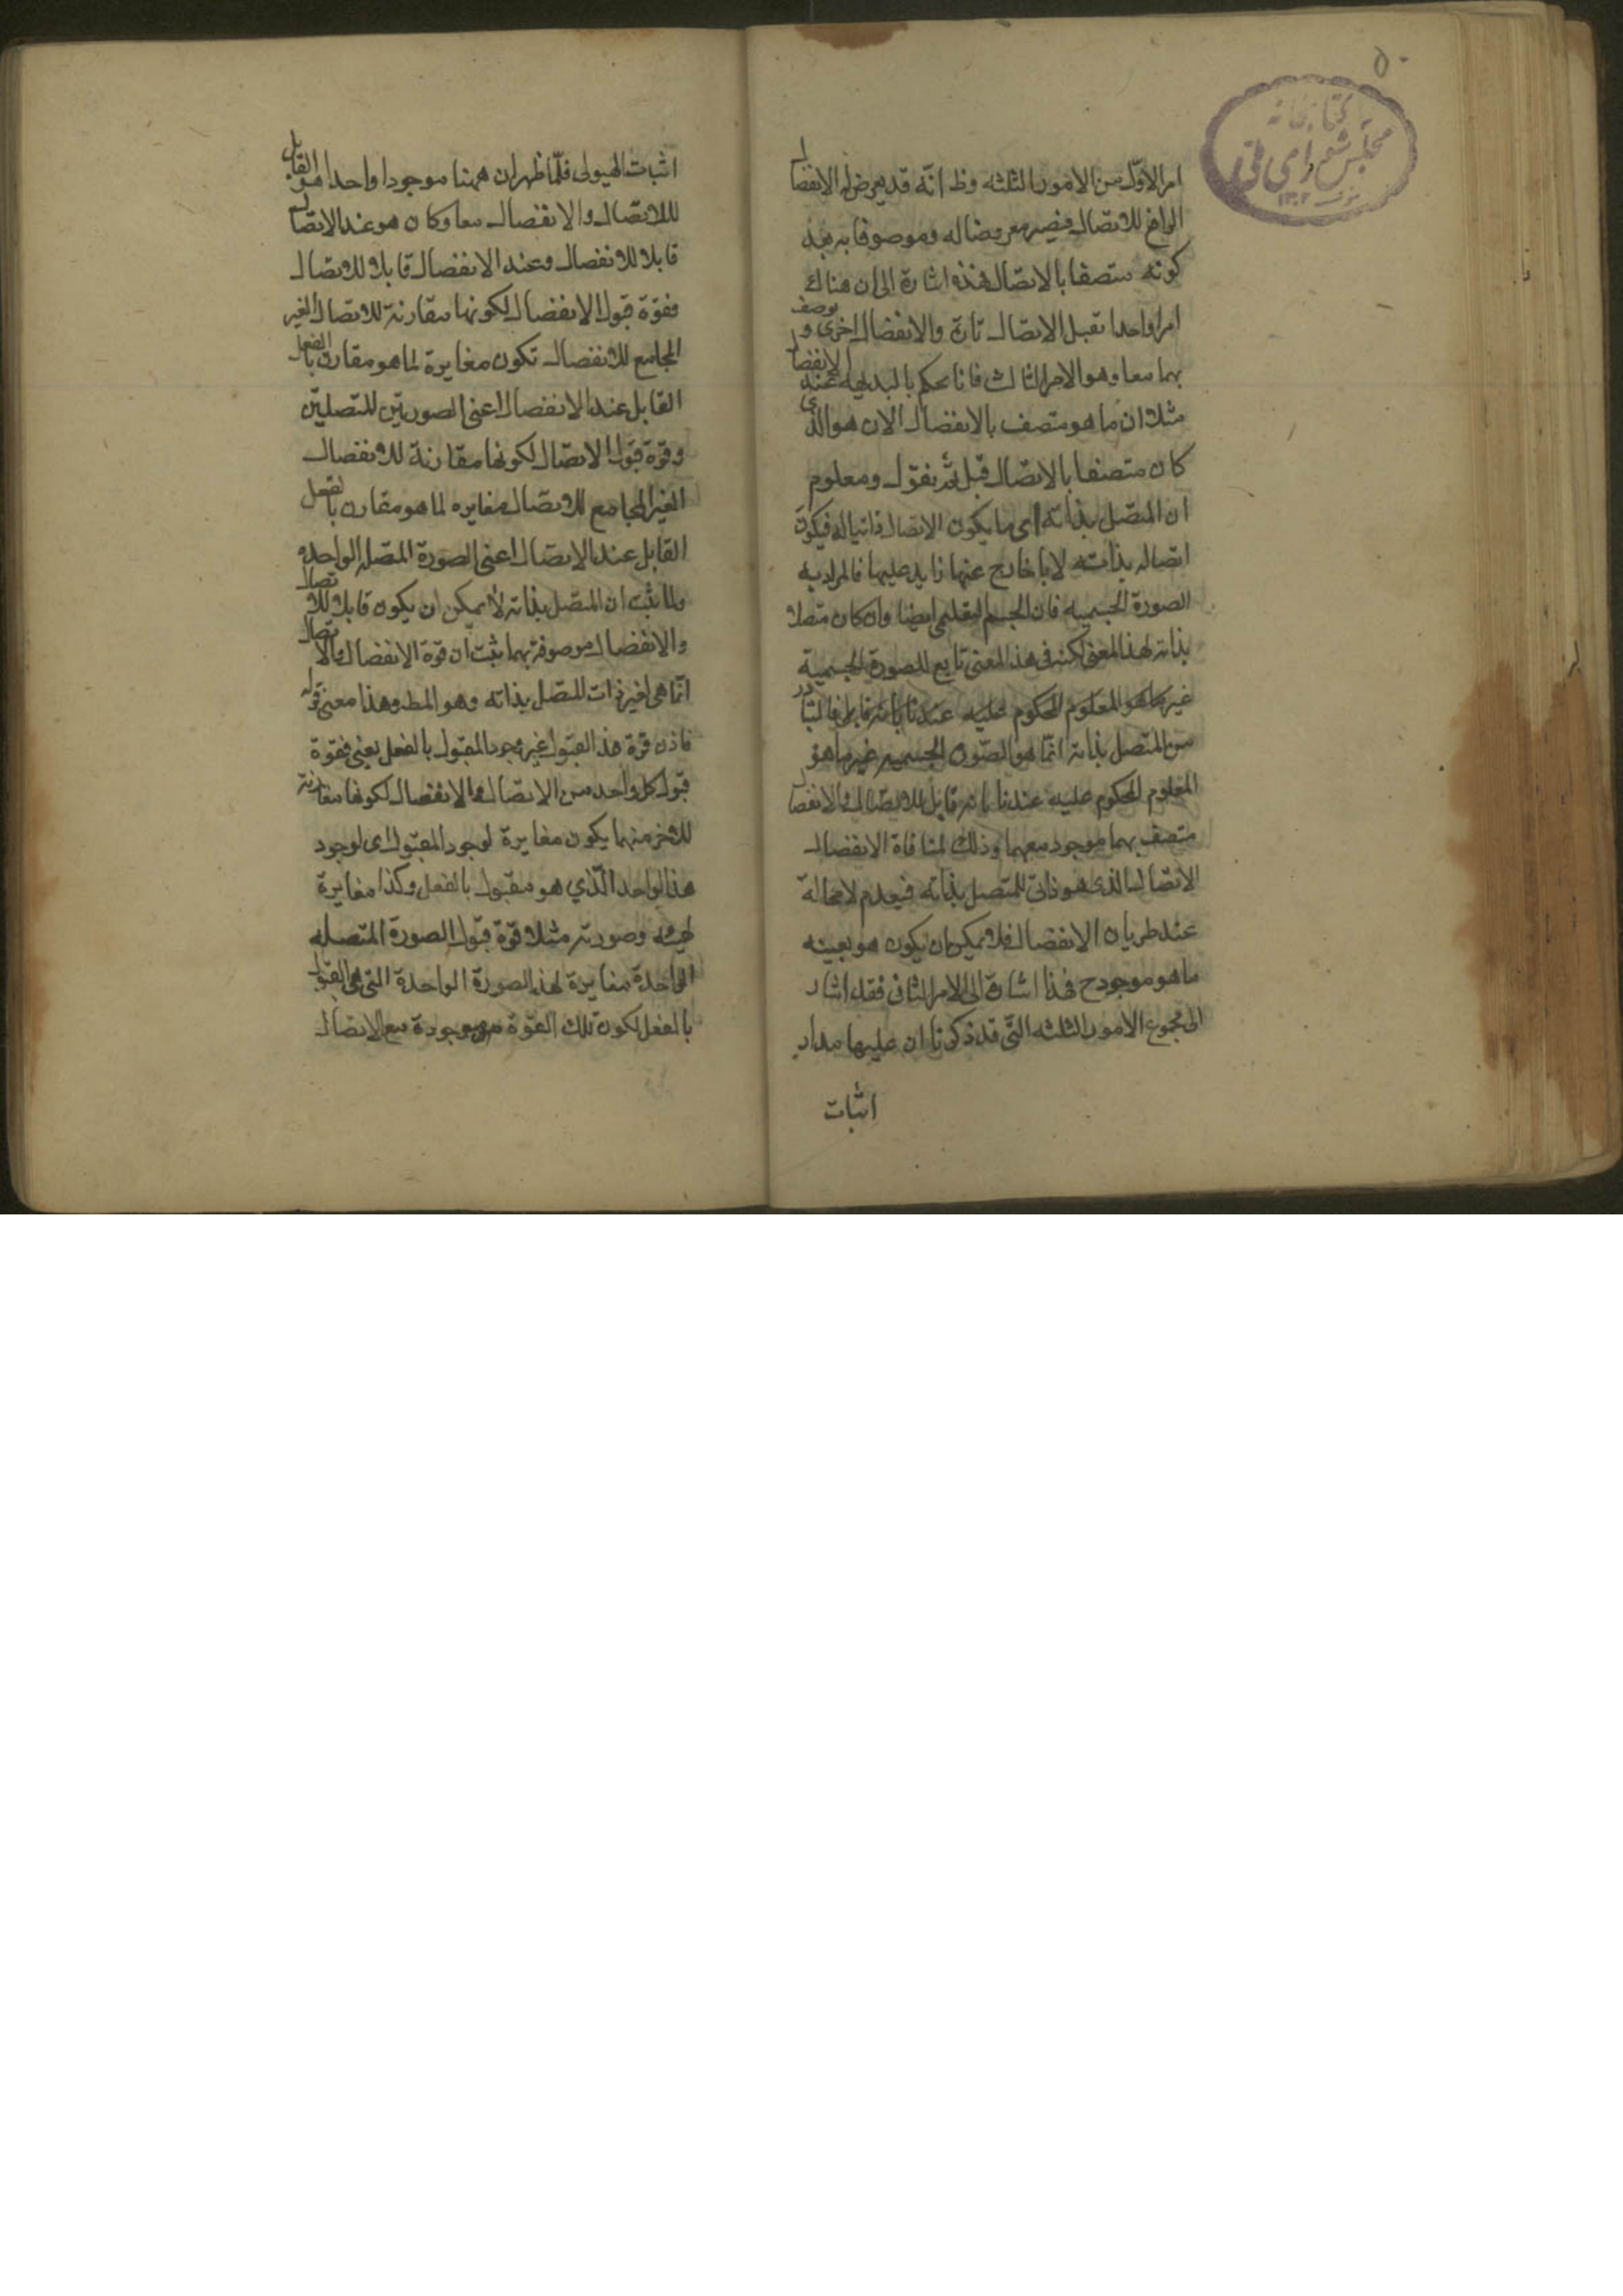 ٥٠
كتابخانه
مجلس شورای ملی
امر الاوّل من الامور الثلثه وظ انّه قد يعرض له الانفصال
الرافع للاتصال فيصير معروضا له وموصوفا به بعد
كونه متصفا بالاتصال فهذه اشارة الى ان هناك
امرا واحدا تقبل الاتصال تارة والانفصال اخرى ويوصف
بهما معا وهو الامر الثالث فانا نحكم بالبديهه عند الانفصال
مثلا ان ما هو متصف بالانفصال الان هو الذى
كان متصفا بالاتصال قبل ثم نقول ومعلوم
ان المتصل بذاته اى ما يكون الاتصال ذاتيا له فيكون
اتصاله بذاته لا بخارج عنها زايد عليها فالمراد به
الصورة الجسميه فان الجسم التعليمى ايضا وان كان متصلا
بذاته لهذا المعنى لكنه فى هذا المعنى تابع للصورة الجسمية
غير ما هو المعلوم المحكوم عليه عندنا بانه قابل فالمتبادر
من المتصل بذاته انّما هو الصورة الجسميه غير ما هو
المعلوم المحكوم عليه عندنا بانه قابل للاتصال والانفصال
متصف بهما موجود معهما وذلك لمنافاة الانفصال
الاتصال الذى هو ذاتى للمتصل بذاته فيعدم لا محالة
عند طريان الانفصال فلا يمكن ان يكون هو بعينه
ما هو موجود ح فهذا اشارة الى الامر الثانى فقد اشار
الى مجموع الامور الثلثه التى قد ذكرنا ان عليها مدار
اثبات
اثبات الهيولى فلمّا ظهر ان ههنا موجودا واحدا هو القابل
للاتصال والانفصال معا وكان هو عند الاتصال
قابلا للانفصال وعند الانفصال قابلا للاتصال
فقوة قبول الانفصال لكونها مقارنة للاتصال الغير
المجامع للانفصال تكون مغايرة لما هو مقارن بالفعل
القابل عند الانفصال اعنى الصورتين المتصلتين
وقوة قبول الاتصال لكونها مقارنة للانفصال
الغير المجامع للاتصال مغايره لما هو مقارن بالفعل
القابل عند الاتصال اعنى الصورة المتصله الواحده
ولما ثبت ان المتصل بذاته لا يمكن ان يكون قابلا للاتصال
والانفصال موصوفة بهما ثبت ان قوة الانفصال والاتصال
انّما هى لغير ذات المتصل بذاته وهو المط وهذا معنى قوله
فاذن قوة هذا القبول غير وجود المقبول بالفعل يعنى فقوة
قبول كل واحد من الاتصال والانفصال لكونها مقارنة
للاخر منهما يكون مغايرة لوجود المقبول اى لوجود
هذا الواحد الّذي هو مقبول بالفعل وكذا مغايرة
لهيئه وصورته مثلا قوة قبول الصورة المتصله
الواحدة مغايرة لهذه الصورة الواحدة التى هى المقبول
بالفعل لكون تلك القوة موجودة مع الاتصال